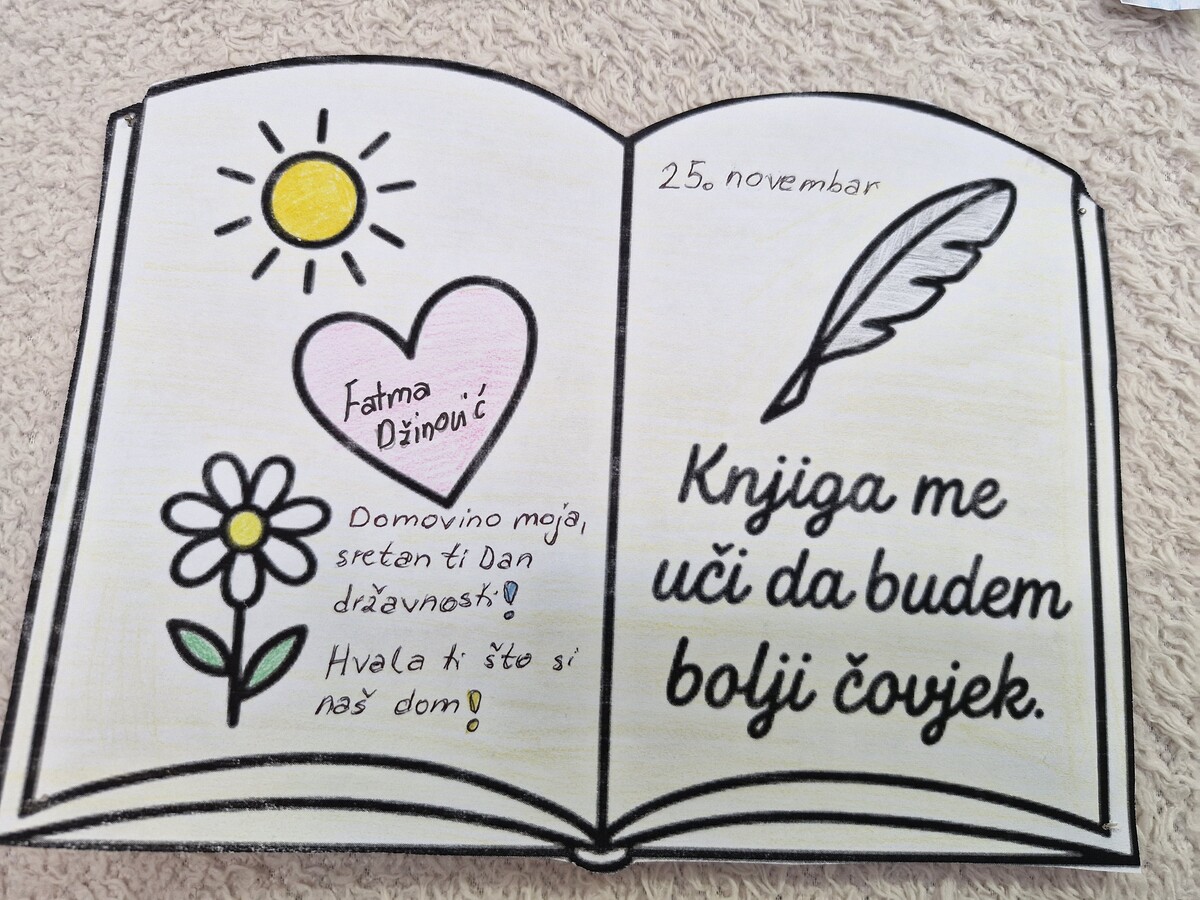 Fatma
Džinović
Domovino moja,
sretan ti Dan
državnosti!
Hvala ti što si
naš dom!
25. novembar
Knjiga me
uči da budem
bolji čovjek.